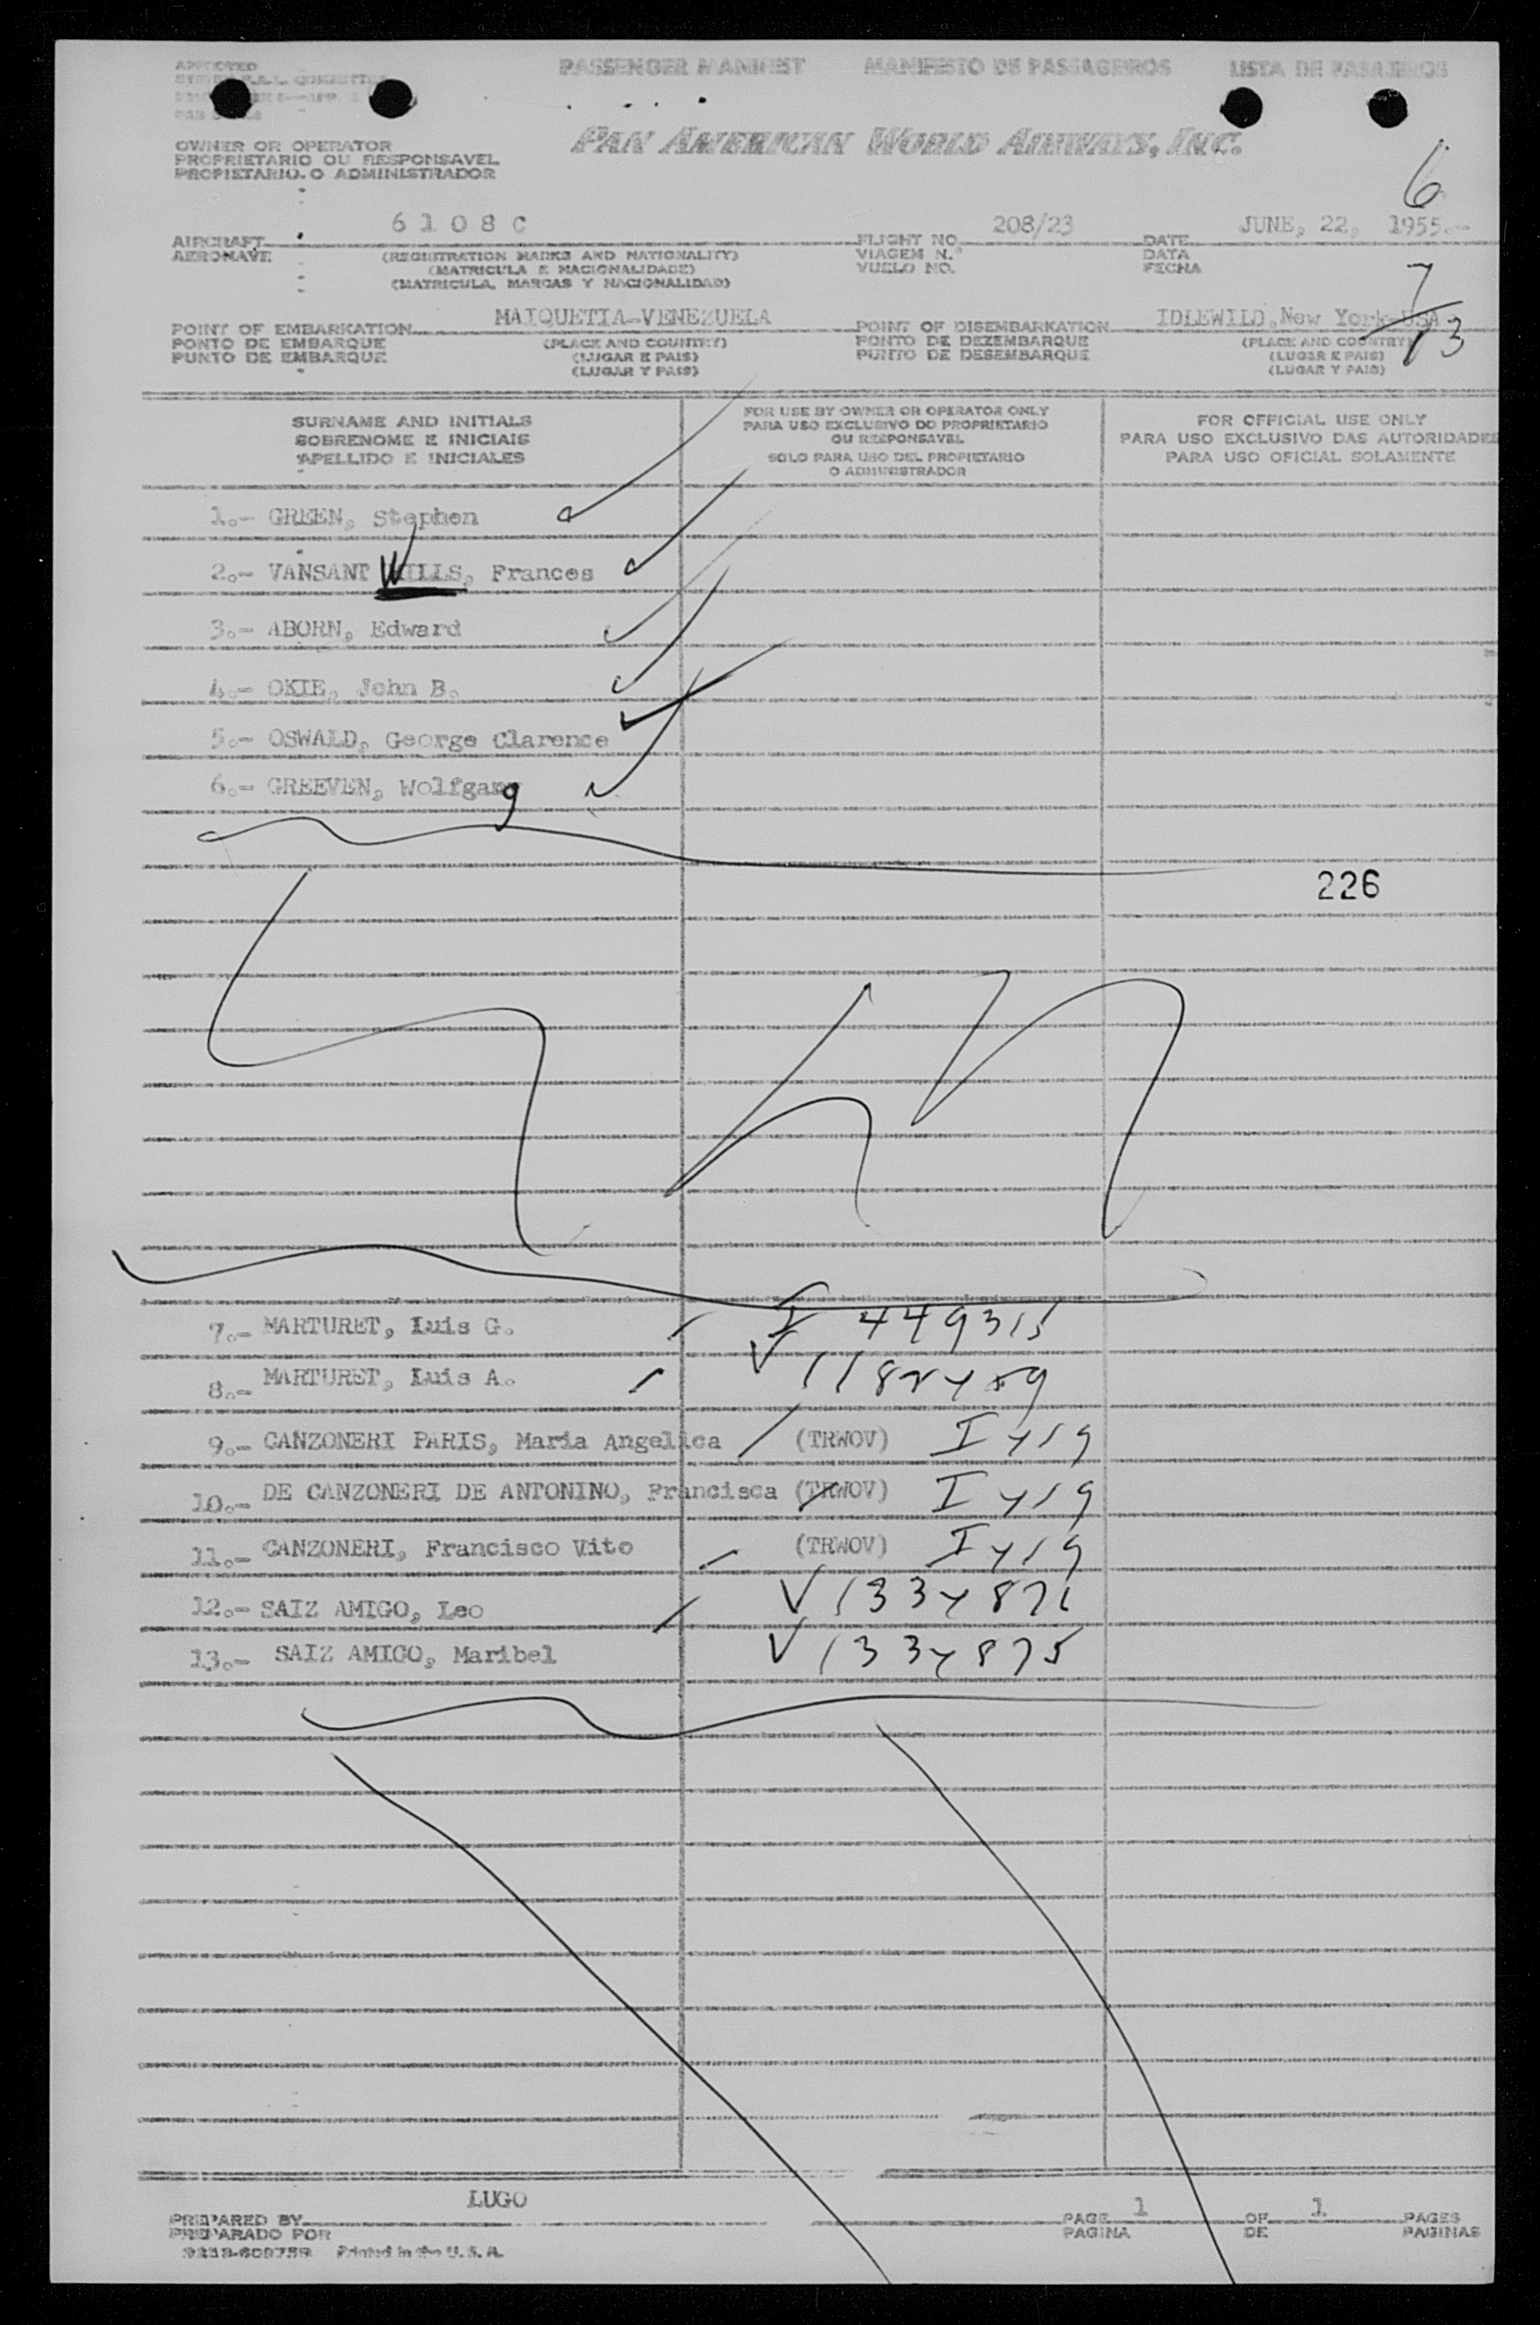 PASSENGER MANIFEST MANIFESTO DE PASSAGEIROS LISTA DE PASAJEROS
APPROVED
PAN AMERICAN WORLD AIRWAYS, INC.
OWNER OR OPERATOR
PROPRIETARIO OU RESPONSAVEL
PROPIETARIO O ADMINISTRADOR
6
AIRCRAFT 6108C FLIGHT NO. 208/23 DATE JUNE, 22, 1955.-
AERONAVE (REGISTRATION MARKS AND NATIONALITY) VIAGEM N.º DATA
(MATRICULA E NACIONALIDADE) VUELO NO. FECHA
(MATRICULA, MARCAS Y NACIONALIDAD)
7
13
POINT OF EMBARKATION MAIQUETIA-VENEZUELA POINT OF DISEMBARKATION IDLEWILD, New York-USA
PONTO DE EMBARQUE (PLACE AND COUNTRY) PONTO DE DEZEMBARQUE (PLACE AND COUNTRY)
PUNTO DE EMBARQUE (LUGAR E PAIS) PUNTO DE DESEMBARQUE (LUGAR E PAIS)
(LUGAR Y PAIS) (LUGAR Y PAIS)
SURNAME AND INITIALS
SOBRENOME E INICIAIS
APELLIDO E INICIALES
FOR USE BY OWNER OR OPERATOR ONLY
PARA USO EXCLUSIVO DO PROPRIETARIO
OU RESPONSAVEL
SOLO PARA USO DEL PROPIETARIO
O ADMINISTRADOR
FOR OFFICIAL USE ONLY
PARA USO EXCLUSIVO DAS AUTORIDADES
PARA USO OFICIAL SOLAMENTE
1.- GREEN, Stephen
2.- VANSANT WILLS, Frances
3.- ABORN, Edward
4.- OKIE, John B.
5.- OSWALD, George Clarence
6.- GREEVEN, Wolfgang
226
7.- MARTURET, Luis G. I 449315
8.- MARTURET, Luis A. V
9.- CANZONERI PARIS, Maria Angelica (TRWOV)
10.- DE CANZONERI DE ANTONINO, Francisca (TRWOV)
11.- CANZONERI, Francisco Vito (TRWOV)
12.- SAIZ AMIGO, Leo V
13.- SAIZ AMIGO, Maribel V
PREPARED BY LUGO PAGE 1 OF 1 PAGES
PREPARADO POR PAGINA DE PAGINAS
Printed in the U.S.A.